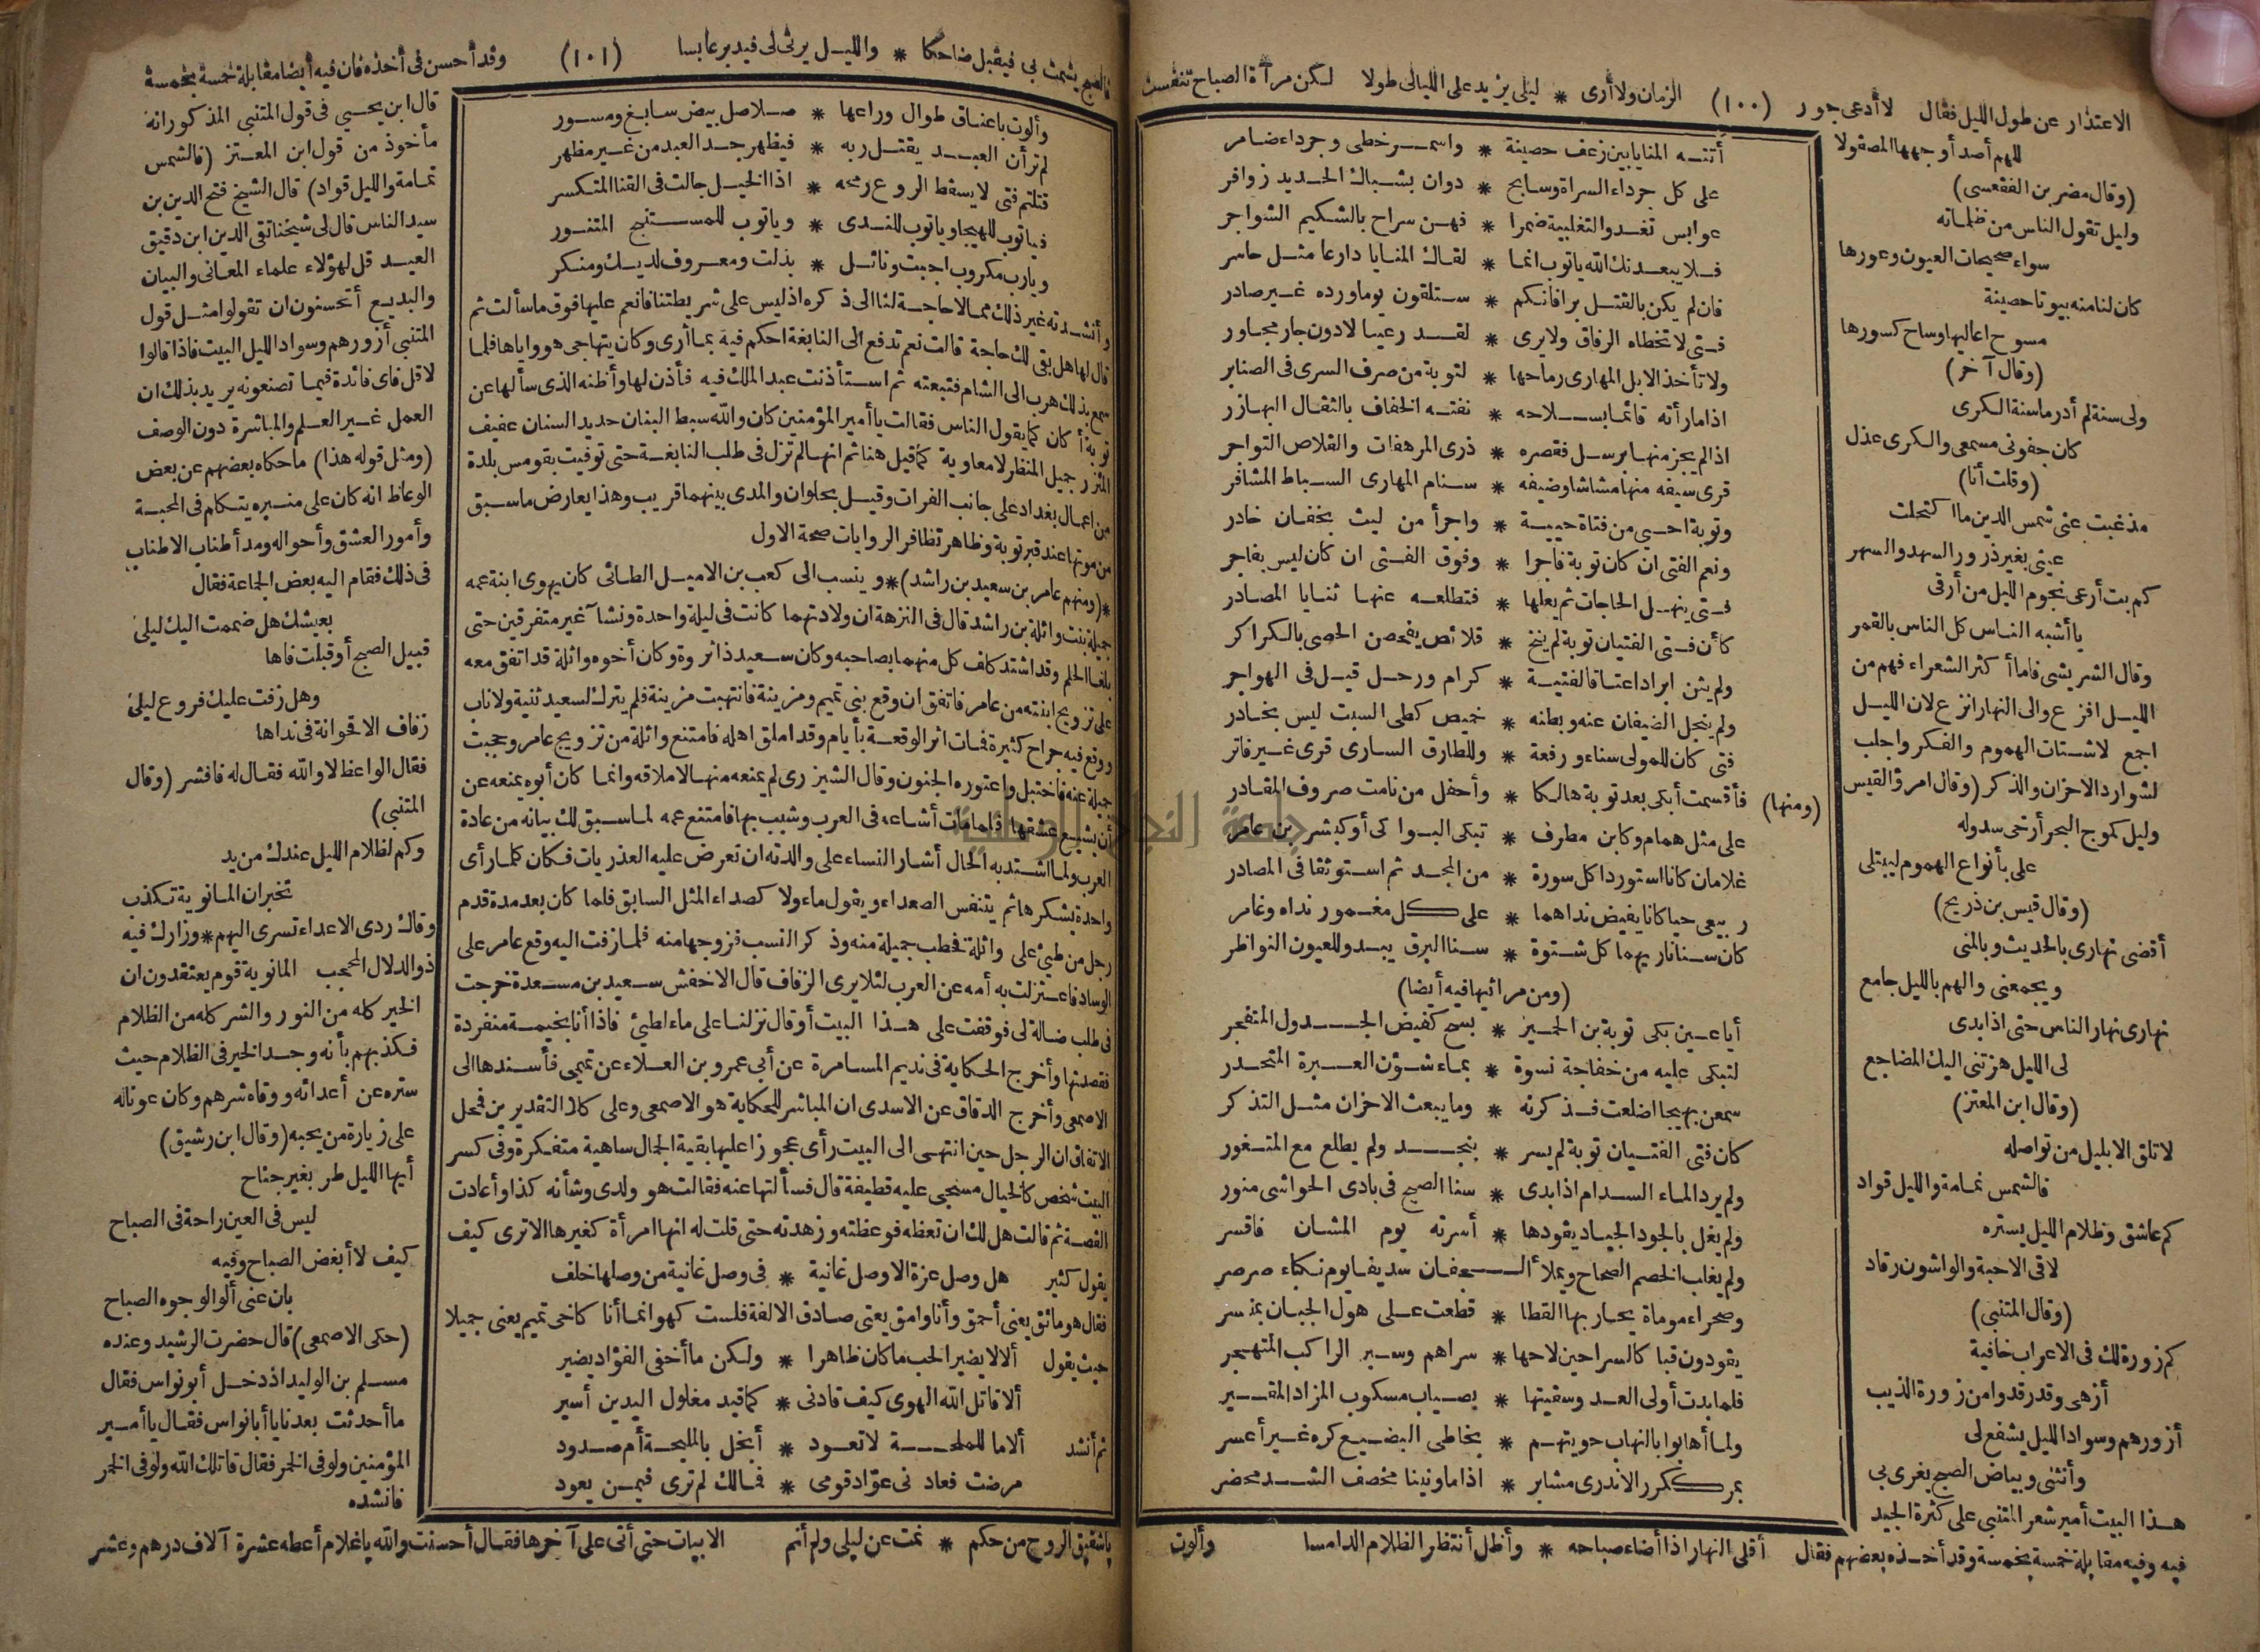 الاعتذار عن طول الليل فقال لا أدعى جور (١٠٠) الزمان ولا أرى * ليلى يزيد على الليالى طولا لكن مرآة الصباح تنفست
للهم أصدأ وجهها المصقولا
(وقال مضر بن الفقعسى)
وليل تقول الناس من ظلماته
سواء صحيحات العيون وعورها
كان لنا منه بيوتا حصينة
مسوح اعاليها وساح كسورها
(وقال آخر)
ولى سنة لم أدر ما سنة الكرى
كان جفونى مسمعى والكرى عذل
(وقلت أنا)
مذ غبت عنى شمس الدين ما اكتحلت
عينى بغير ذرور السهد والسهر
كم بت أرعى نجوم الليل من أرقى
يا أشبه الناس كل الناس بالقمر
وقال الشريشى فاما أكثر الشعراء فهم من
الليل افزع والى النهار انزع لان الليل
اجمع لاشتات الهموم والفكر واجلب
لشوارد الاحزان والذكر (وقال امرؤ القيس
وليل كموج البحر أرخى سدوله
على بأنواع الهموم ليبتلى
(وقال قيس بن ذريح)
أقضى نهارى بالحديث وبالمنى
ويجمعنى والهم بالليل جامع
نهارى نهار الناس حتى اذا بدى
لى الليل هزتنى اليك المضاجع
(وقال ابن المعتز)
لا تلق الا بليل من تواصله
فالشمس نمامة والليل قواد
كم عاشق وظلام الليل يستره
لاقى الاحبة والواشون رقاد
(وقال المتنبى)
كم زورة لك فى الاعراب خافية
أزهى وقد رقدوا من زورة الذيب
أزورهم وسواد الليل يشفع لى
وأنثنى وبياض الصبح يغرى بى
هذا البيت أمير شعر المتنبى على كثرة الجيد
فيه وفيه مقابلة خمسة بخمسة وقد أخذه بعضهم فقال أقلى النهار اذا أضاء صباحه * وأظل أنتظر الظلام الدامسا وألوت
أتته المنايا بين زعف حصينة * واسمر خطى وجرداء ضامر
على كل جرداء السراة وسابح * دوان بشباك الحديد زوافر
عوابس تغدو التغلبية ضمرا * فهن سراح بالشكيم الشواجر
فلا يبعدنك الله ياتوب انما * لقاك المنايا دارعا مثل حاسر
فان لم يكن بالقتل برا فانكم * ستلقون يوما ورده غير صادر
فتى لا تخطاه الرفاق ولا يرى * لقدر عيالا دون جار مجاور
ولا تأخذ الابل المهارى رماحها * لتوبة من صرف السرى فى الصنابر
اذا ما رأته قائما بسلاحه * نفته الخفاف بالثقال البهازر
اذا لم يجز منها برسل فقصره * ذرى المرهفات والقلاص التواجر
قرى سيفه منها مشاشا وضيفه * سنام المهارى السباط المشافر
وتوبة احيى من فتاة حيية * واجرأ من ليث بخفان خادر
ونعم الفتى ان كان توبة فاجرا * وفوق الفتى ان كان ليس بفاجر
فتى ينهل الحاجات ثم يعلها * فتطلعه عنها ثنايا المصادر
كأن فتى الفتيان توبة لم ينخ * قلائص يفحصن الحصى بالكراكر
ولم يثن ابرادا عتاقا لفتية * كرام ورحل قيل فى الهواجر
ولم ينجل الضيفان عنه وبطنه * خميص كطى السبت ليس بخادر
فتى كان للمولى سناء ورفعة * وللطارق السارى قرى غير فاتر
(ومنها) فأقسمت أبكى بعد توبة هالكا * وأحفل من نامت صروف المقادر
على مثل همام وكابن مطرف * تبكى البواكى أو كبشر بن عامر
غلامان كانا استوردا كل سورة * من المجد ثم استوثقا فى المصادر
ربيعى حيا كانا يفيض نداهما * على كل مغمور نداه وغامر
كان سنا ناريهما كل شتوة * سنا البرق يبدو للعيون النواظر
(ومن مراثيها فيه أيضا)
أيا عين بكى توبة بن الحمير * بسح كفيض الجدول المتفجر
لتبكى عليه من خفاجة نسوة * بماء شؤن العبرة المتحدر
سمعن بهيجا اضلعت فذكرنه * وما يبعث الاحزان مثل التذكر
كان فتى الفتيان توبة لم يسر * بنجد ولم يطلع مع المتغور
ولم يرد الماء السدام اذا بدى * سنا الصبح فى بادى الحواشى منور
ولم يغل بالجود الجياد يقودها * أسرته يوم المشان فاقسر
ولم يغلب الخصم الصحاح ويملأ الجفان سديفا يوم نكباء صرصر
وصحراء موماة يحار بها القطا * قطعت على هول الجبان بمنسر
يقودون قبا كالسراحين لاحها * سراهم وسير الراكب المتهجر
فلما بدت أولى العدو سقيتها * بصباب مسكوب المزاد المقير
ولما أهابوا بالنهاب حويتهم * بخاظى البضيع كره غير أعسر
بمر ككر الاندرى مشابر * اذا ما ونينا مخصف الشد محضر
فالصبح يشمت بى فيقبل ضاحكا * والليل يرثى لى فيدبر عابسا (١٠١) وقد أحسن فى أخذه فان فيه أيضا مقابلة خمسة بخمسة
وألوت باعناق طوال وراعها * صلاصل بيض سابغ ومسور
لم تر أن العبد يقتل ربه * فيظهر جد العبد من غير مظهر
قتلتم فتى لا يسقط الروع رمحه * اذا الخيل جالت فى القنا المتكسر
فياتوب للهيجا وياتوب للندى * وياتوب للمستنبح المتنور
ويارب مكروب اجبت ونائل * بذلت ومعروف لديك ومنكر
وأنشدته غير ذلك مما لا حاجة لنا الى ذكره اذ ليس على شريطتنا فانعم عليها فوق ما سألت ثم
قال لها هل بقى لك حاجة قالت نعم تدفع الى النابغة احكم فيه بما أرى وكان يتهاجى هو واياها فلما
سمع بذلك هرب الى الشام فتبعته ثم استأذنت عبد الملك فيه فأذن لها وأظنه الذى سألها عن
توبة أكان كما يقول الناس فقالت يا أمير المؤمنين كان والله سبط البنان حديد السنان عفيف
المئزر جميل المنظر لا معاوية كما قيل هنا ثم انها لم تزل فى طلب النابغة حتى توفيت بقومس بلدة
من اعمال بغداد على جانب الفرات وقيل بحلوان والمدى بينهما قريب وهذا يعارض ما سبق
من موتها عند قبر توبة وظاهر تظافر الروايات صحة الاول
*(ومنهم عامر بن سعيد بن راشد)* وينسب الى كعب بن الاميل الطائى كان يهوى ابنة عمه
جميلة بنت واثلة بن راشد قال فى النزهة ان ولادتهما كانت فى ليلة واحدة ونشآ غير متفرقين حتى
بلغا الحلم وقد اشتد كلف كل منهما بصاحبه وكان سعيد ذا ثروة وكان أخوه واثلة قد اتفق معه
على تزويج ابنته من عامر فاتفق ان وقع بنى تميم ومزينة فانتهبت مزينة فلم يترك لسعيد ثنية ولا ناب
ووقع فيه جراح كثيرة فمات اثر الوقعة بأيام وقد املق اهله فامتنع واثلة من تزويج عامر وحجبت
جميلة عنه فاختبل واعتوره الجنون وقال الشيزرى لم يمنعه منها لاملاقه وانما كان أبوه يمنعه عن
أن يشيع عشقها فلما مات أشاعه فى العرب وشبب بها فامتنع عمه لما سبق لك بيانه من عادة
العرب ولما اشتد به الحال أشار النساء على والدته ان تعرض عليه العذريات فكان كلما رأى
واحدة يشكرها ثم يتنفس الصعداء ويقول ماء ولا كصداء المثل السابق فلما كان بعد مدة قدم
رجل من طيئ على واثلة فخطب جميلة منه وذكر النسب فزوجها منه فلما زفت اليه وقع عامر على
الوساد فاعتزلت به أمه عن العرب لئلا يرى الزفاف قال الاخفش سعيد بن مسعدة خرجت
فى طلب ضالة لى فوقفت على هذا البيت أو قال نزلنا على ماء لطيئ فاذا أنا بخيمة منفردة
فقصدتها وأخرج الحكاية فى نديم المسامرة عن أبى عمرو بن العلاء عن تميمى فأسندها الى
الاصمعى وأخرج الدقاق عن الاسدى ان المباشر للحكاية هو الاصمعى وعلى كلا التقديرين فمحل
الاتفاق ان الرجل حين انتهى الى البيت رأى عجوزا عليها بقية الجمال ساهية متفكرة وفى كسر
البيت شخص كالخيال مسجى عليه قطيفة قال فسألتها عنه فقالت هو ولدى وشأنه كذا وأعادت
القصة ثم قالت هل لك ان تعظه فوعظته وزهدته حتى قلت له انها امرأة كغيرها الا ترى كيف
يقول كثير هل وصل عزة الا وصل غانية * فى وصل غانية من وصلها خلف
فقال هو مائق يعنى أحمق وأنا وامق يعنى صادق الالفة فلست كهو انما أنا كاخى تميم يعنى جميلا
حيث يقول ألا لا يضير الحب ما كان ظاهرا * ولكن ما أخفى الفؤاد يضير
ألا قاتل الله الهوى كيف قادنى * كما قيد مغلول اليدين أسير
ثم أنشد ألا ما للملحة لا تعود * أبخل بالمليحة أم صدود
مرضت فعادنى عواد قومى * فمالك لم ترى فيمن يعود
قال ابن يحيى فى قول المتنبى المذكور انه
مأخوذ من قول ابن المعتز (فالشمس
نمامة والليل قواد) قال الشيخ فتح الدين بن
سيد الناس قال لى شيخنا تقى الدين ابن دقيق
العيد قل لهؤلاء علماء المعانى والبيان
والبديع أتحسنون ان تقولوا مثل قول
المتنبى أزورهم وسواد الليل البيت فاذا قالوا
لا قل فاى فائدة فيما تصنعونه يريد بذلك ان
العمل غير العلم والمباشرة دون الوصف
(ومثل قوله هذا) ما حكاه بعضهم عن بعض
الوعاظ انه كان على منبره يتكلم فى المحبة
وأمور العشق وأحواله ومد أطناب الاطناب
فى ذلك فقام اليه بعض الجماعة فقال
بعيشك هل ضممت اليك ليلى
قبيل الصبح أو قبلت فاها
وهل زفت عليك فروع ليلى
زفاف الاقحوانة فى نداها
فقال الواعظ لا والله فقال له فافشر (وقال
المتنبى)
وكم لظلام الليل عندك من يد
تخبر ان المانوية تكذب
وقاك ردى الاعداء تسرى اليهم * وزارك فيه
ذو الدلال المحجب المانوية قوم يعتقدون ان
الخير كله من النور والشر كله من الظلام
فكذبهم بأنه وجد الخير فى الظلام حيث
ستره عن أعدائه ووقاه شرهم وكان عونا له
على زيارة من يحبه (وقال ابن رشيق)
أيها الليل طر بغير جناح
ليس فى العين راحة فى الصباح
كيف لا أبغض الصباح وفيه
بان عنى ألو الوجوه الصباح
(حكى الاصمعى) قال حضرت الرشيد وعنده
مسلم بن الوليد اذ دخل أبو نواس فقال
ما أحدثت بعدنا يا أبا نواس فقال يا أمير
المؤمنين ولو فى الخمر فقال قاتلك الله ولو فى الخمر
فانشده
يا شقيق الروح من حكم * نمت عن ليلى ولم أنم الابيات حتى أتى على آخرها فقال أحسنت والله يا غلام أعطه عشرة آلاف درهم وعشر